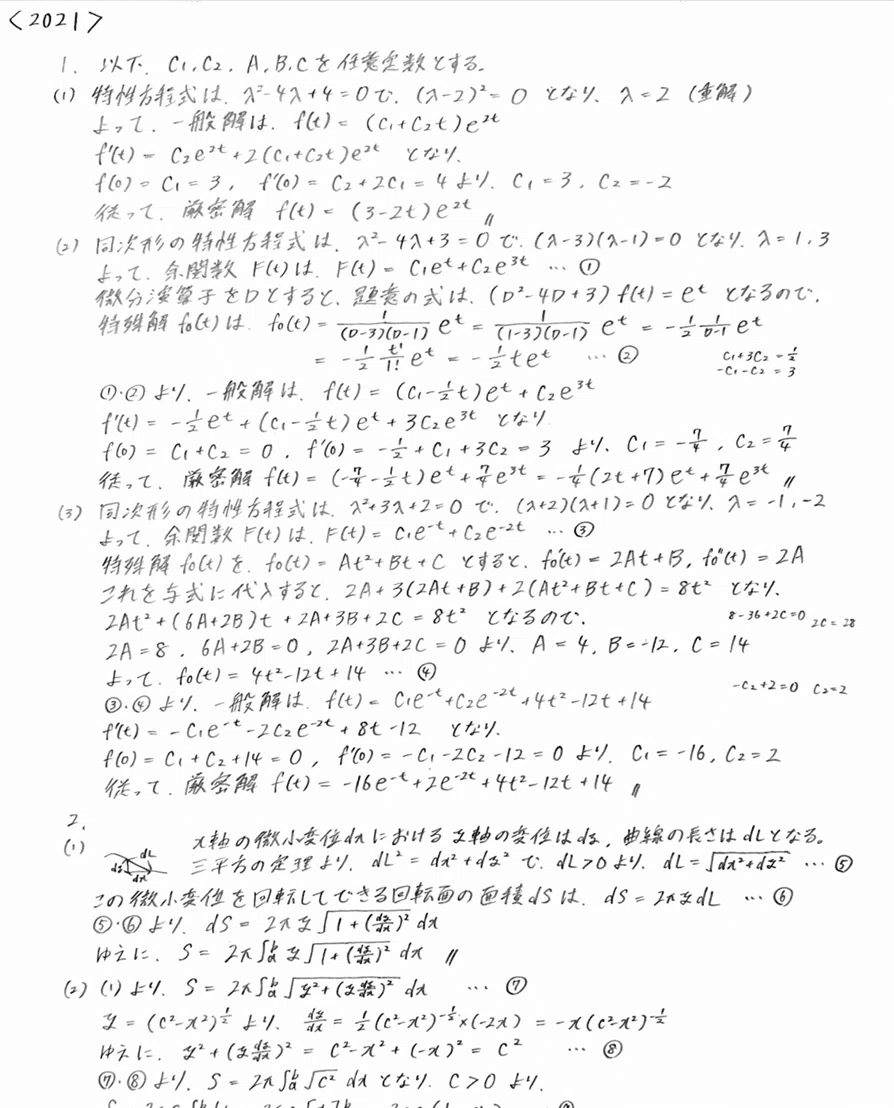 <2021>
1. 以下、C₁, C₂, A, B, C を任意定数とする。
(1) 特性方程式は、λ²-4λ+4=0で、(λ-2)²=0 となり、λ=2 (重解)
よって、一般解は、f(t) = (C₁+C₂t)e²ᵗ
f'(t) = C₂e²ᵗ+2(C₁+C₂t)e²ᵗ となり、
f(0) = C₁ = 3, f'(0) = C₂+2C₁ = 4 より、C₁=3, C₂=-2
従って、厳密解 f(t) = (3-2t)e²ᵗ 〃
(2) 同次形の特性方程式は、λ²-4λ+3=0で、(λ-3)(λ-1)=0 となり、λ=1,3
よって、余関数 F(t)は、F(t) = C₁eᵗ+C₂e³ᵗ … ①
微分演算子をDとすると、題意の式は、(D²-4D+3)f(t)=eᵗ となるので、
特殊解 f₀(t)は、f₀(t) = 1/((D-3)(D-1)) eᵗ = 1/((1-3)(D-1)) eᵗ = -1/2 1/(D-1) eᵗ
= -1/2 t¹/1! eᵗ = -1/2 teᵗ … ②
C₁+3C₂=1/2
-C₁-C₂=3
①・②より、一般解は、f(t) = (C₁-1/2t)eᵗ+C₂e³ᵗ
f'(t) = -1/2eᵗ+(C₁-1/2t)eᵗ+3C₂e³ᵗ となり
f(0) = C₁+C₂ = 0, f'(0) = -1/2+C₁+3C₂ = 3 より、C₁=-7/4, C₂=7/4
従って、厳密解 f(t) = (-7/4-1/2t)eᵗ+7/4e³ᵗ = -1/4(2t+7)eᵗ+7/4e³ᵗ 〃
(3) 同次形の特性方程式は、λ²+3λ+2=0で、(λ+2)(λ+1)=0 となり、λ=-1,-2
よって、余関数 F(t)は、F(t) = C₁e⁻ᵗ+C₂e⁻²ᵗ … ③
特殊解 f₀(t)を、f₀(t) = At²+Bt+C とすると、f₀'(t) = 2At+B, f₀''(t) = 2A
これを与式に代入すると、2A+3(2At+B)+2(At²+Bt+C) = 8t² となり、
2At²+(6A+2B)t+2A+3B+2C = 8t² となるので、
8-36+2C=0 2C=28
2A=8, 6A+2B=0, 2A+3B+2C=0 より、A=4, B=-12, C=14
よって、f₀(t) = 4t²-12t+14 … ④
-C₂+2=0 C₂=2
③・④より、一般解は、f(t) = C₁e⁻ᵗ+C₂e⁻²ᵗ+4t²-12t+14
f'(t) = -C₁e⁻ᵗ-2C₂e⁻²ᵗ+8t-12 となり、
f(0) = C₁+C₂+14 = 0, f'(0) = -C₁-2C₂-12 = 0 より、C₁=-16, C₂=2
従って、厳密解 f(t) = -16e⁻ᵗ+2e⁻²ᵗ+4t²-12t+14 〃
2.
(1) dz dL dx
x軸の微小変位dxにおけるz軸の変位はdz, 曲線の長さはdLとなる。
三平方の定理より、dL² = dx²+dz² で、dL>0より、dL = √(dx²+dz²) … ⑤
この微小変位を回転してできる回転面の面積dSは、dS = 2πzdL … ⑥
⑤・⑥より、dS = 2πz√(1+(dz/dx)²) dx
ゆえに、S = 2π∫ₐᵇ z√(1+(dz/dx)²) dx 〃
(2) (1)より、S = 2π∫ₐᵇ √(z²+(z dz/dx)²) dx … ⑦
z = (C²-x²)^(1/2) より、dz/dx = 1/2(C²-x²)^(-1/2)×(-2x) = -x(C²-x²)^(-1/2)
ゆえに、z²+(z dz/dx)² = C²-x²+(-x)² = C² … ⑧
⑦・⑧より、S = 2π∫ₐᵇ √C² dx となり、C>0より、